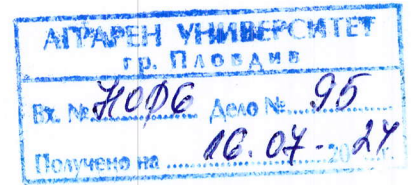 АГРАРЕН УНИВЕРСИТЕТ
гр. Пловдив
Вх. № НОФ6 Дело № 95
Получено на 16.07 - 20 24